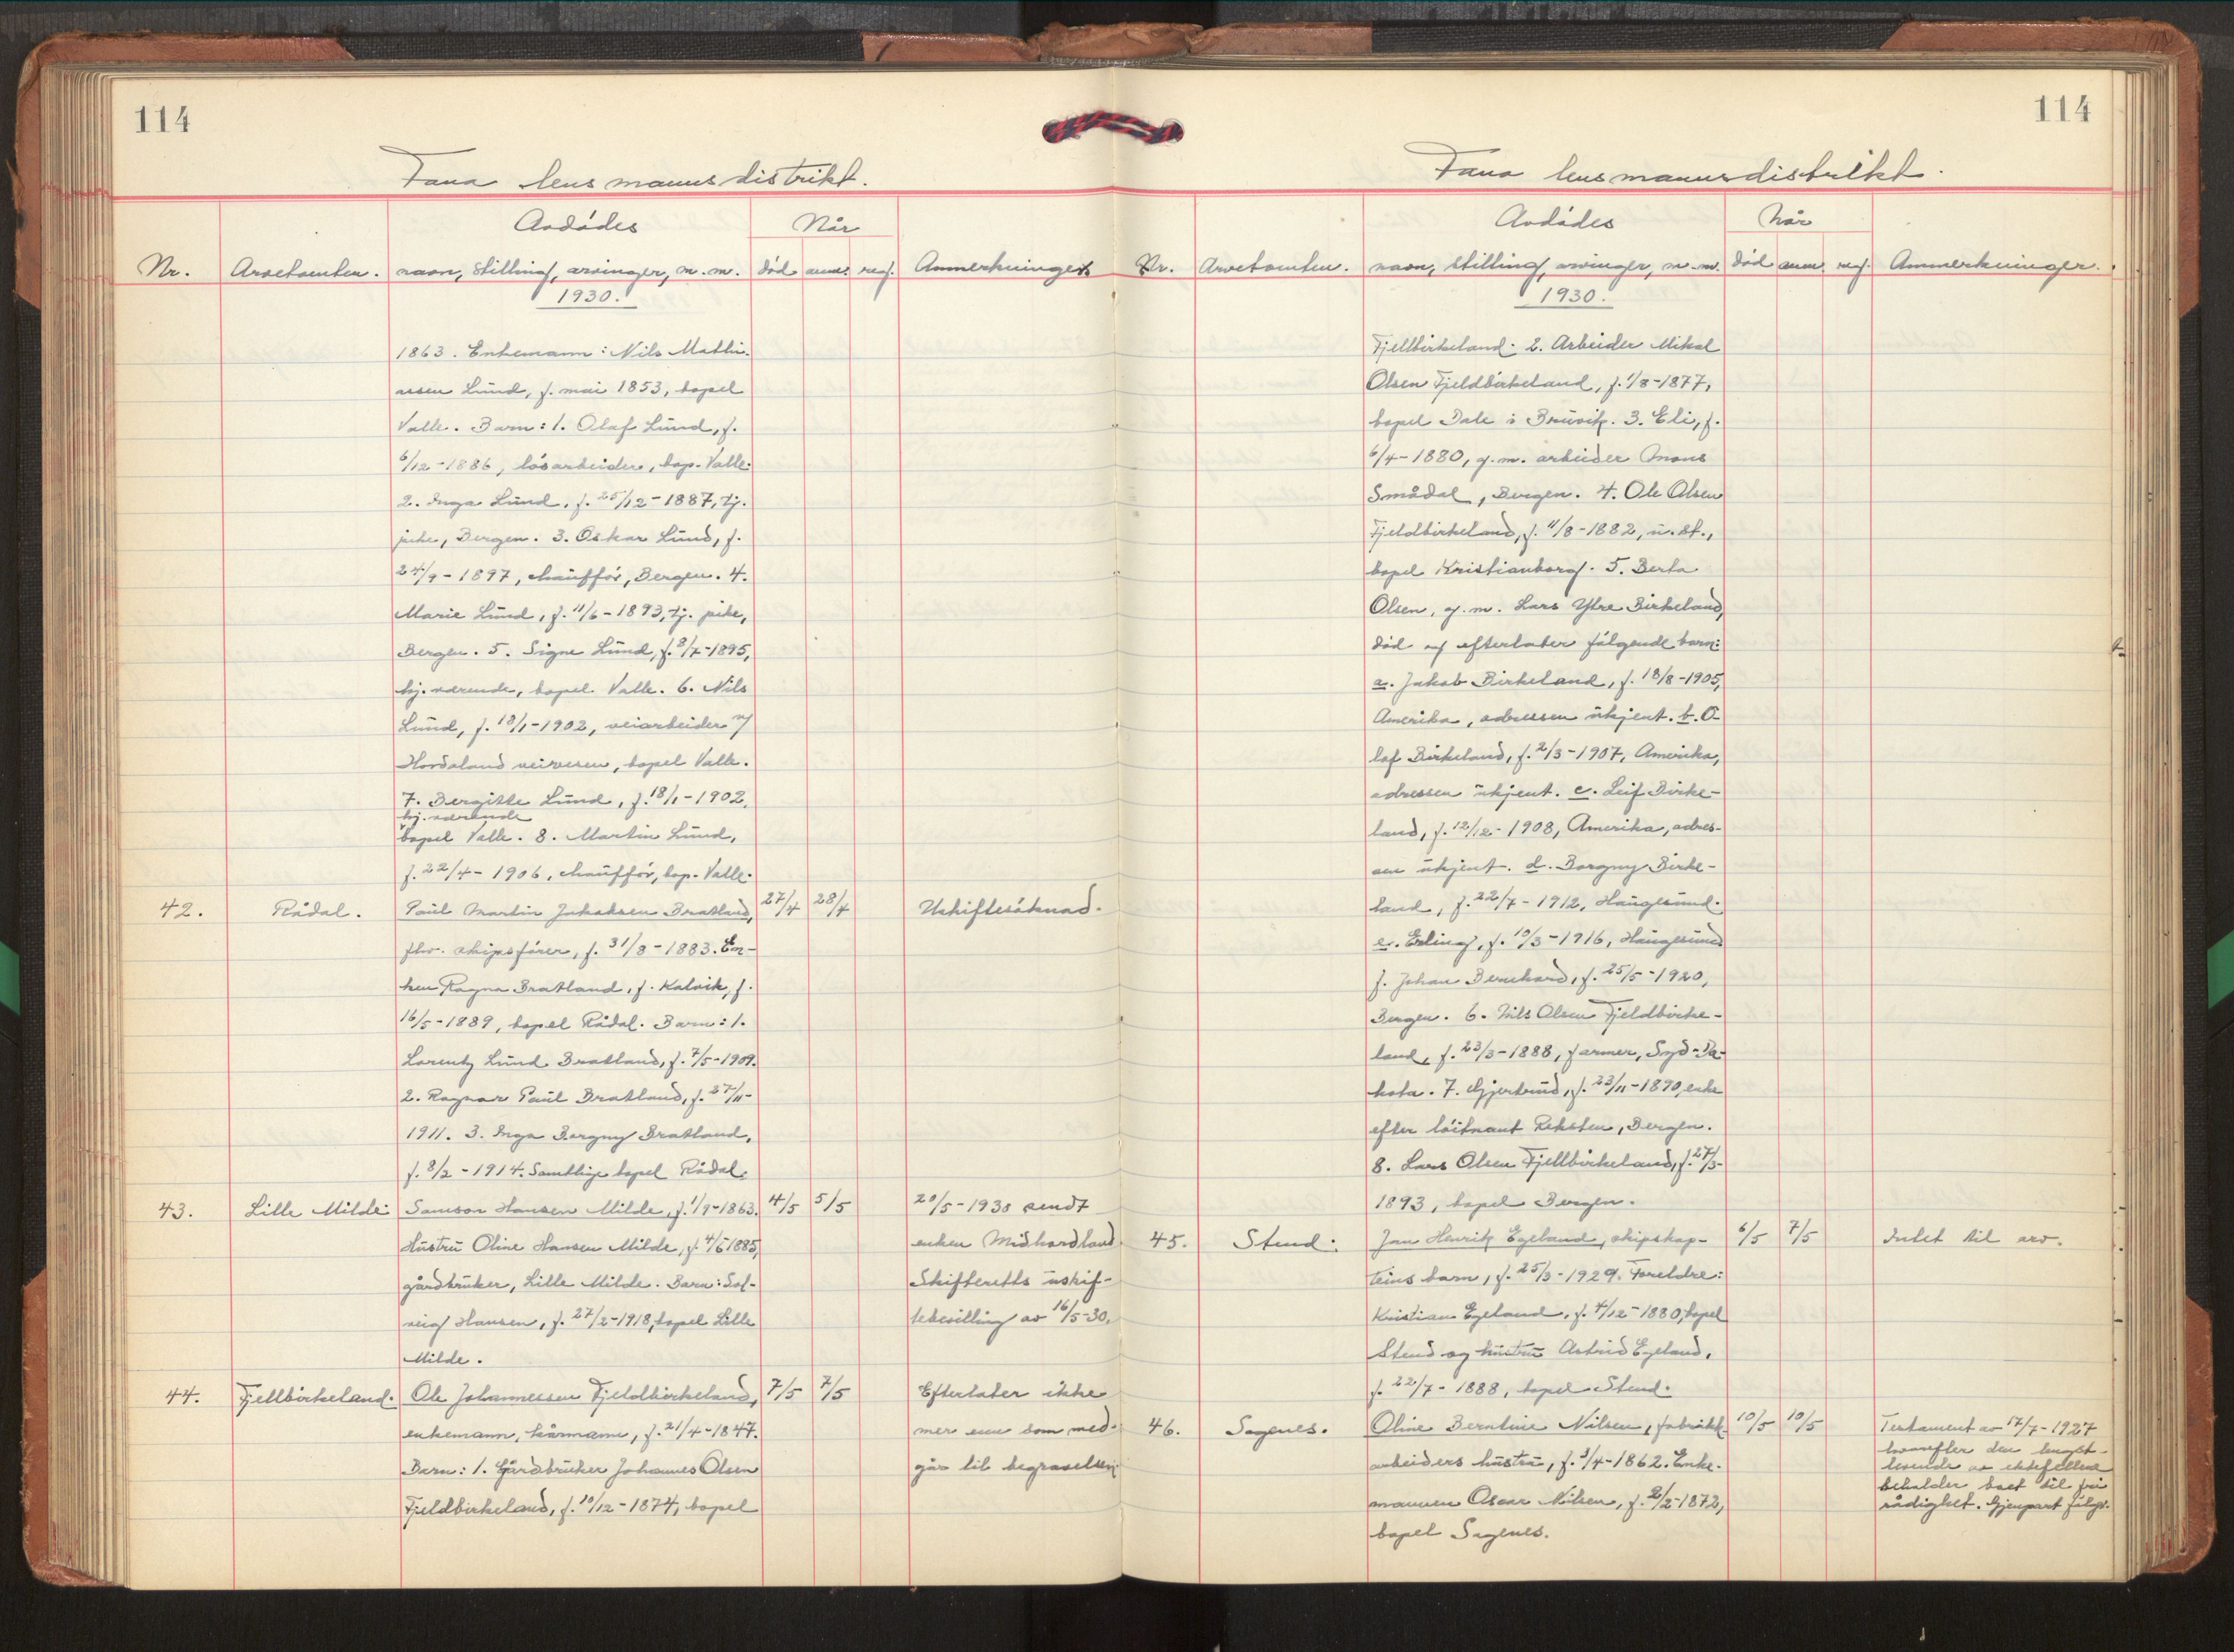 114
Fana lensmannsdistrikt.
Avdødes
Når
Nr. Arvetomten. navn, stilling, arvinger, m.m. død anm. reg. Anmerkninger
1930.
1863. Enkemann: Nils Mathi-
assen Lund, f. mai 1853, bopel
Valle. Barn: 1. Olaf Lund, f.
6/12-1886, løsarbeider, bop. Valle.
2. Inga Lund, f. 25/12-1887, tj.
pike, Bergen. 3. Oskar Lund, f.
24/9-1897, chauffør, Bergen. 4.
Marie Lund, f. 11/6-1893, tj. pike,
Bergen. 5. Signe Lund, f. 8/7-1895,
hj. værende, bopel Valle. 6. Nils
Lund, f. 18/1-1902, veiarbeider v/
Hordaland veivesen, bopel Valle.
7. Bergitte Lund, f. 18/1-1902,
hj. værende
bopel Valle. 8. Martin Lund,
f. 22/4-1906, chauffør, bop. Valle.
42. Rådal. Paul Martin Jakobsen Bratland, 27/4 28/4 Uskiftesøknad.
fhv. skipsfører, f. 31/8-1883. En-
ken Ragna Bratland, f. Kalvik, f.
16/5-1889, bopel Rådal. Barn: 1.
Lorentz Lund Bratland, f. 7/5-1909.
2. Ragnar Paul Bratland, f. 27/11-
1911. 3. Inga Borgny Bratland,
f. 8/2-1914. Samtlige bopel Rådal.
43. Lille Milde. Samson Hansen Milde, f. 1/9-1863. 4/5 5/5 20/5-1930 sendt
Hustru Oline Hansen Milde, f. 4/6 1885, enken Midhordland
gårdbruker, Lille Milde. Barn: Sol- Skifteretts uskif-
veig Hansen, f. 27/2-1918, bopel Lille tebevilling av 16/5-30.
Milde.
44. Fjellbirkeland. Ole Johannessen Fjeldbirkeland, 7/5 7/5 Efterlater ikke
enkemann, kårmann, f. 21/4-1847. mer enn som med-
Barn: 1. Gårdbruker Johannes Olsen går til begravelsen
Fjeldbirkeland, f. 10/12-1874, bopel
114
Fana lensmannsdistrikt.
Avdødes
Når
Nr. Arvetomten. navn, stilling, arvinger, m.m. død anm. reg. Anmerkninger.
1930.
Fjellbirkeland. 2. Arbeider Mikal
Olsen Fjeldbirkeland, f. 1/8-1877,
bopel Dale i Bruvik. 3. Eli, f.
6/4-1880, g.m. arbeider Mons
Smådal, Bergen. 4. Ole Olsen
Fjeldbirkeland, f. 11/8-1882, u. st.,
bopel Kristianborg. 5. Berta
Olsen, g.m. Lars Ytre Birkeland,
død og efterlater følgende barn:
a. Jakob Birkeland, f. 18/8-1905,
Amerika, adressen ukjent. b. O-
laf Birkeland, f. 2/3-1907, Amerika,
adressen ukjent. c. Leif Birke-
land, f. 12/12-1908, Amerika, adres-
sen ukjent. d. Borgny Birke-
land, f. 22/7-1912, Haugesund.
e. Erling, f. 10/3-1916, Haugesund
f. Johan Bernhard, f. 25/5-1920,
Bergen. 6. Nils Olsen Fjeldbirke-
land, f. 23/3-1888, farmer, Syd-Da-
kota. 7. Gjertrud, f. 23/11-1890, enke
efter løitnant Reksten, Bergen.
8. Lars Olsen Fjellbirkeland, f. 27/5-
1893, bopel Bergen.
45. Stend. Jan Henrik Egeland, skipskap- 6/5 7/5 Intet til arv.
teins barn, f. 25/3-1929. Foreldre:
Kristian Egeland, f. 4/12-1880, bopel
Stend og hustru Astrid Egeland,
f. 22/7-1888, bopel Stend.
46. Sagenes. Oline Berntine Nilsen, fabrikk- 10/5 10/5 Testament av 17/7-1927
arbeiders hustru, f. 3/4-1862. Enke- hvorefter den lengst-
levende av ektefellene
mannen Oscar Nilsen, f. 2/2-1872, beholder boet til fri
rådighet. Gjenpart følger.
bopel Sagenes.